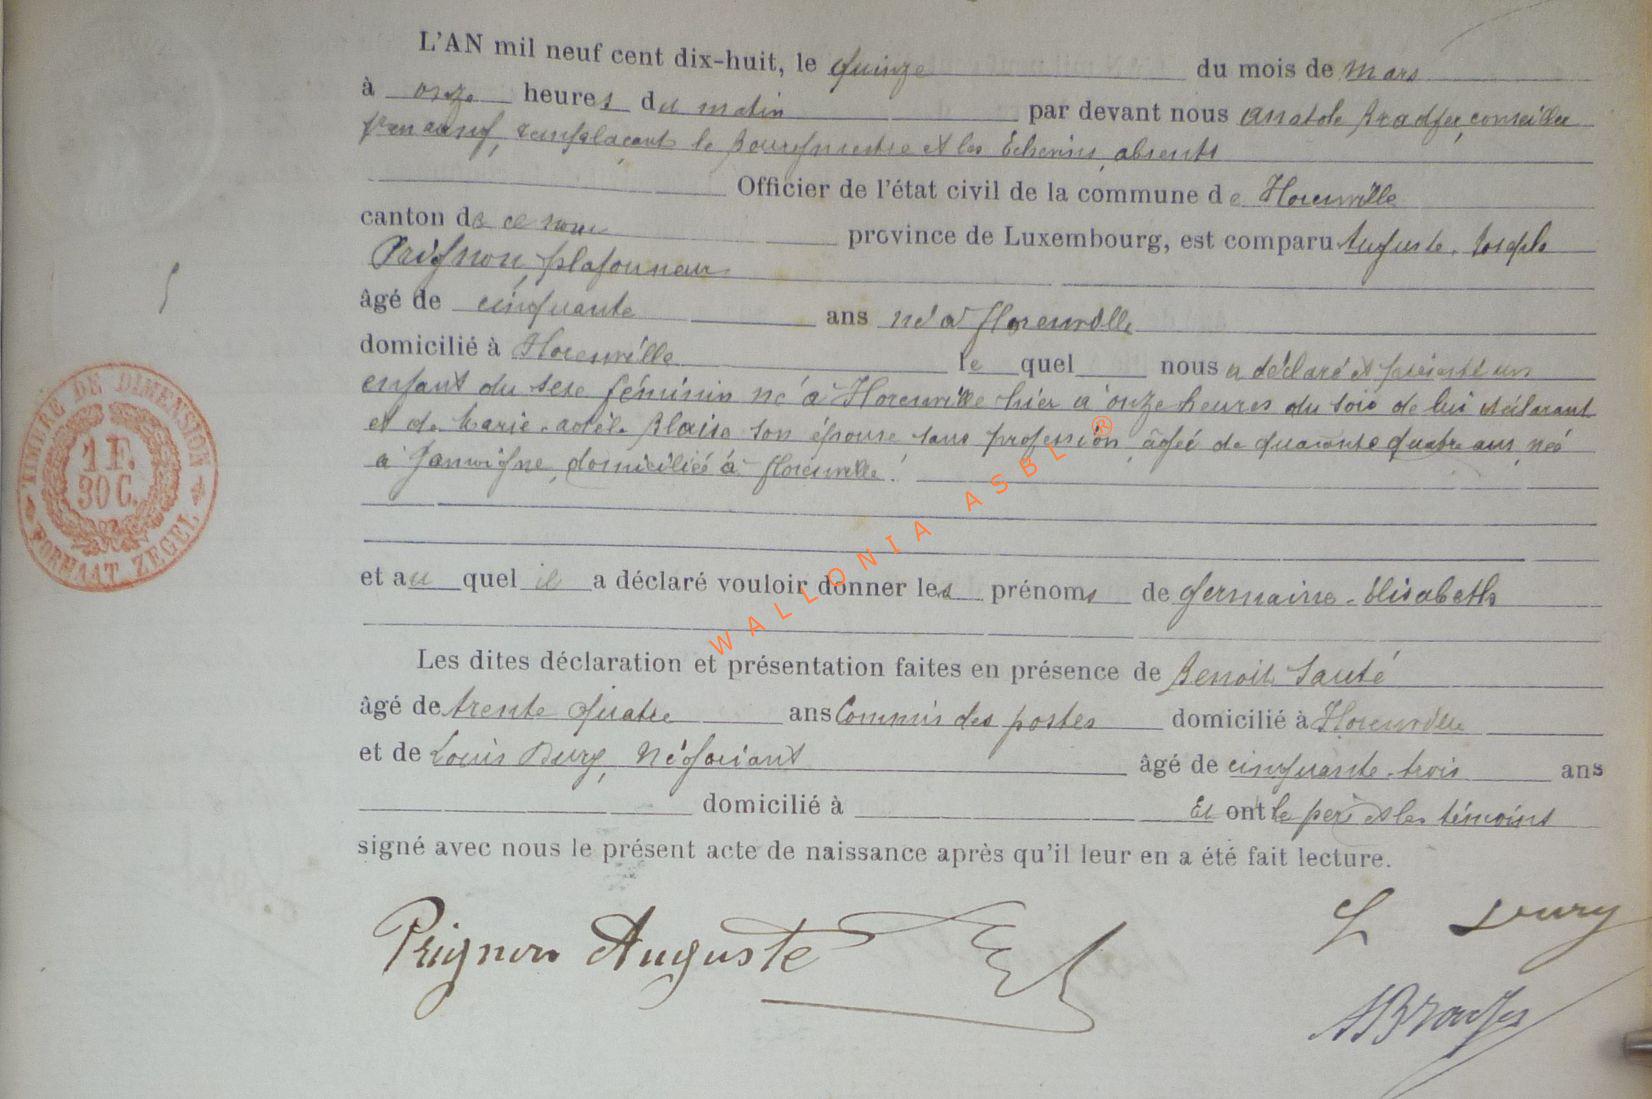 L'AN mil neuf cent dix-huit, le quinze du mois de Mars
à onze heures du matin par devant nous Anatole Bradfer, conseiller
remplaçant le Bourgmestre et les Echevins absents
Officier de l'état civil de la commune de Florenville
canton de ce nom province de Luxembourg, est comparu Auguste-Joseph
Prignon, plafonneur
âgé de cinquante ans né à Florenville
domicilié à Florenville lequel nous a déclaré et présenté un
enfant du sexe féminin né à Florenville hier à onze heures du soir de lui déclarant
et de Marie-Adèle Blaise son épouse, sans profession, âgée de quarante quatre ans, née
à Jamoigne, domiciliée à Florenville.
et auquel il a déclaré vouloir donner les prénoms de Germaine-Elisabeth
Les dites déclaration et présentation faites en présence de Benoit Sauté
âgé de trente quatre ans Commis des postes domicilié à Florenville
et de Louis Dury, Négociant âgé de cinquante-trois ans
domicilié à Et ont le père et les témoins
signé avec nous le présent acte de naissance après qu'il leur en a été fait lecture.
Prignon Auguste
L Dury
ABradfer
TIMBRE DE DIMENSION
1 F.
30 C.
FORMAAT ZEGEL
WALLONIA ASBL ®